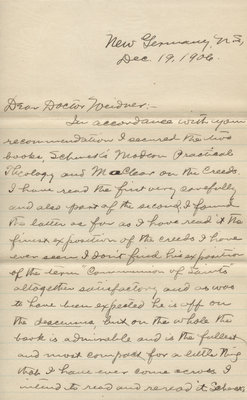 New Germany, N.S.,
Dec. 19, 1906.
Dear Doctor Weidner:-
In accordance with your
recommendation I secured the two
books, Schuette's Modern Practical
Theology and MacLear on the Creeds.
I have read the first very carefully
and also part of the second. I found
the latter as far as I have read it the
finest exposition of the creeds I have
ever seen. I don't find his exposition
of the term "Communion of Saints"
altogether satisfactory, and as was
to have been expected he is off on
the descensus, but on the whole the
book is admirable and is the fullest
and most compact for a little thing
that I have ever come across. I
intend to read and reread it.